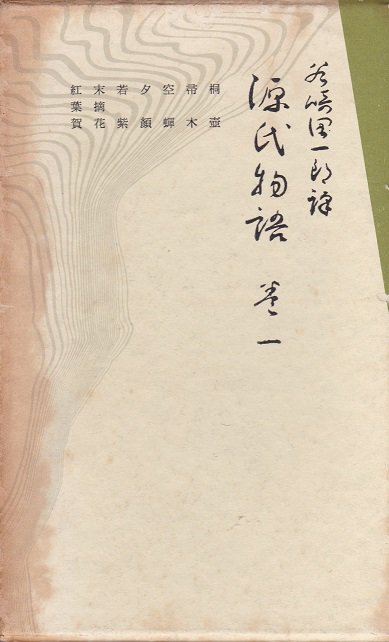 谷崎潤一郎譯
源氏物語 巻一
桐壺
帚木
空蟬
夕顏
若紫
末摘花
紅葉賀